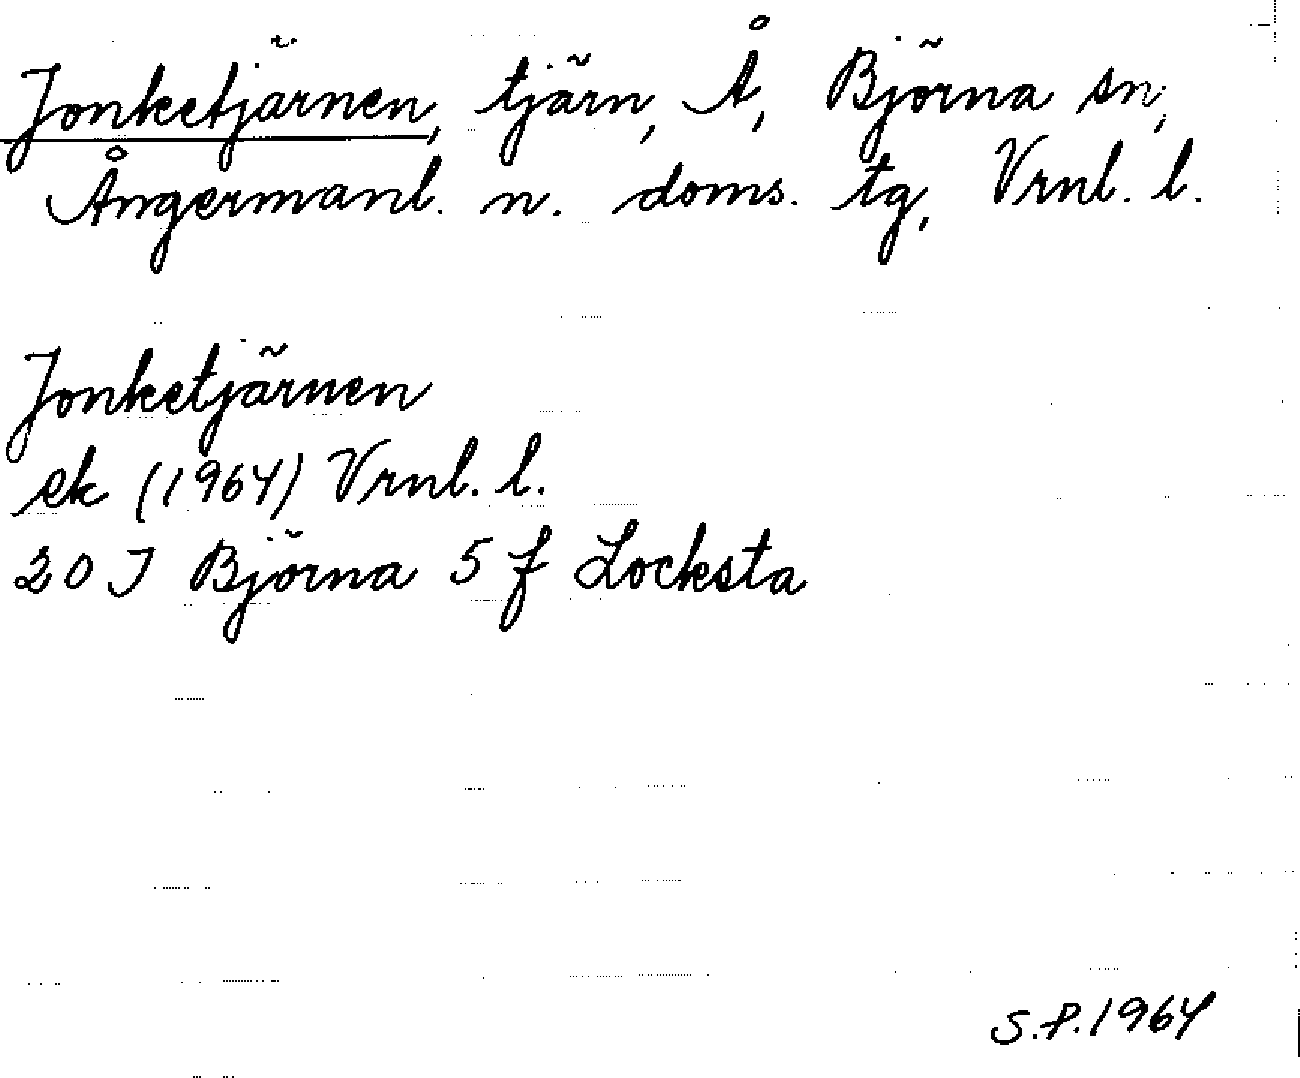 Jonketjärnen, tjärn, Å, Björna sn,
Ångermanl. n. doms. tg, Vrnl. l.
Jonketjärnen
ek (1964) Vrnl. l.
20 J Björna 5 f Locksta
S.P. 1964